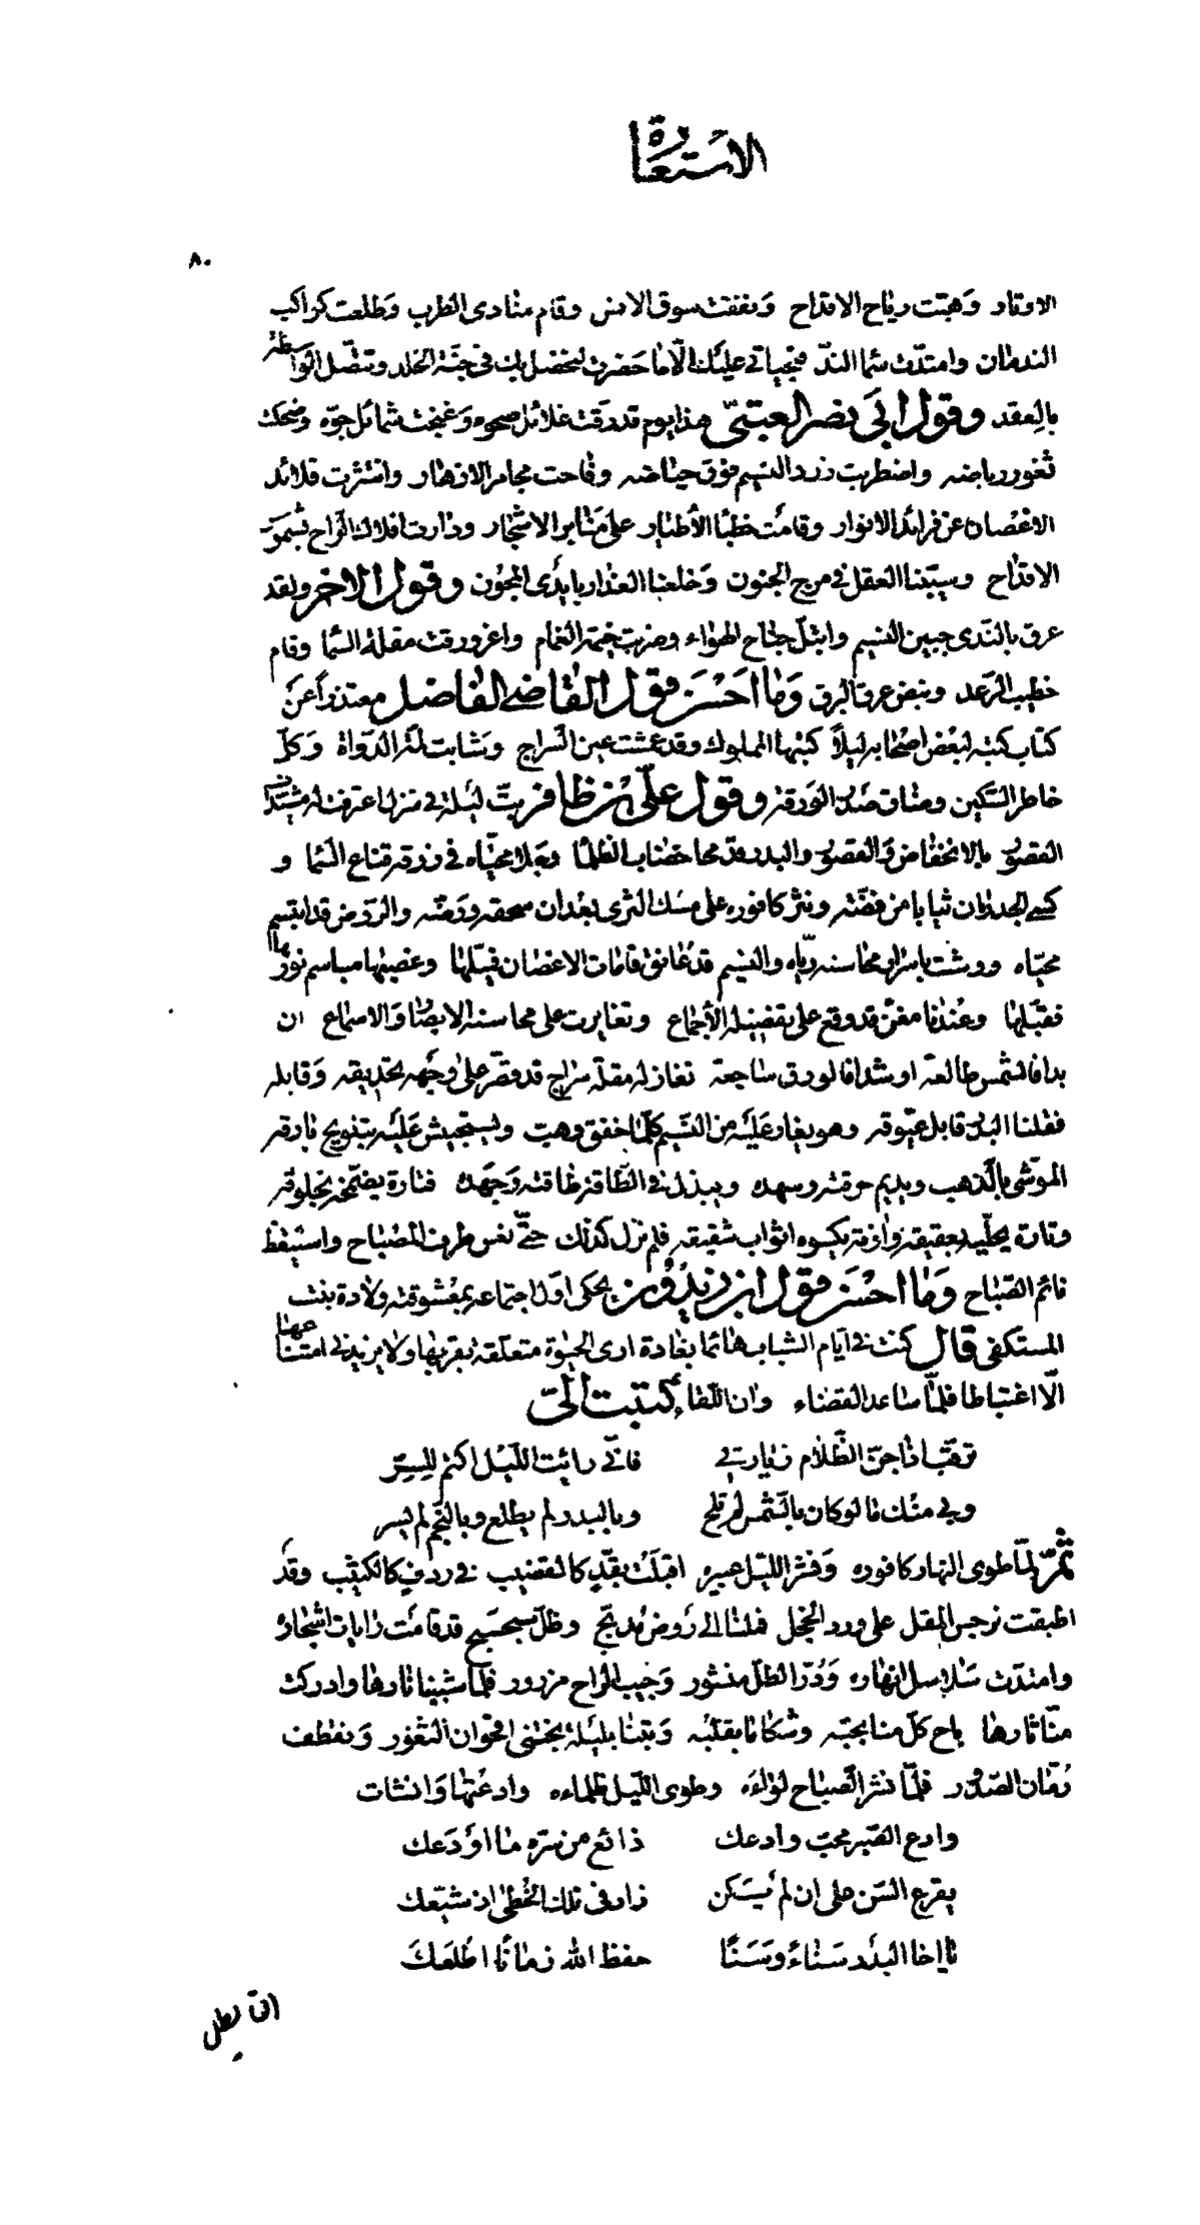 الاستعارة
٨٠
الاوتار وَهبّت رياح الاقداح وَنفقت سوق الانس وقام منادى الطرب وَطلعت كواكب
الندمان وامتدّت سما الندّ فبحياتى عليك الّا ما حضرت لنحصل بك فى جنّة الخلد وتتّصل الواسطة
بالعِقد وقول ابى نصر العتبىّ هذا يوم قد رقّت غلائل صحوه وَغنجت شمائل جوّه وضحكت
ثغور رياضه واضطرب زرد النسيم فوق حياضه وفاحت مجامر الازهار وانتثرت قلائد
الاغصان عن فرائد الانوار وقامت خطبا الأطيار على منابر الاشجار ودارت افلاك الراح بشموس
الاقداح وسيّبنا العقل فى مرج الجنون وَخلعنا العذار بايدى المجون وقول الاخر ولقد
عرق بالنّدى جبين النسيم وابتلّ جناح الهواء وضربت خيمة الغمام واغرورقت مقلة السّما وقام
خطيب الرّعد ونبض عرق البرق وَما احسَن قول القاضى الفاضل معتذراً عن
كتاب كتبه لبعض اصحابه ليلاً كتبها المملوك وقد عمشت عين السّراج وَشابت لمّة الدّواة وَكلّ
خاطر السّكين وضاق صدر الورقة وقول علىّ بن ظافر بتّ ليلة فى منزل اعترفت له مشيّدات
القصور بالانخفاض وَالقصور والبدر قد محا خضاب الظلما وجلا محيّاه فى زرقة قناع السّما و
كسى الجدران ثيابا من فضّته ونثر كافوره على مسك الثرى بعد ان سحقه ورَضّه والرّوض قد ابتسم
محيّاه ووشت باسرار محاسنه ريّاه والنسيم قد عانق قامات الاغصان فميّلها وغصبها مباسم نورها
فقبّلها وعندنا مغنّ قد وقع على تفضيله الأجماع وتغايرت على محاسنه الابصار وَالاسماع ان
بدا فالشمس طالعة او شدا فالورق ساجعة تغازله مقلة سراج قد قصّر على وجهه تحديقه وَقابله
فقلنا البدر قابل عيّوقه وهو يغار عَليه من النّسيم كلّما خفق وهب ويستجيش عليه بتلويح بارقه
الموّشى بالّذهب ويديم حرقته وسهده ويبذل فى الطّافه طاقته وَجَهده فتارة يضمّخه بخلوقه
وتارة يحلّيه بعقيقه وآونة يكسوه اثواب شقيقه فلم نزل كذلك حتّى نعس طرف المصباح واستيقظ
نائم الصّباح وَما احسَن قول ابن زيدون يحكى اوّل اجتماعه بمعشوقته ولادة بنت
المستكفى قال كنت فى ايّام الشباب هائما بغادة ارى الحيوة متعلّقة بقربها ولا يزيدنى امتناعها
الّا اغتباطا فلمّا ساعد القضاء وان اللقاء كتبت الىّ
ترقّب اذا جنّ الظّلام زيارتى فانّى رايت اللّيل اكتم للسِرّ
وبى منك ما لو كان بالشّمس لم تلح وبالبدر لم يطلع وبالنّجم لم يسر
ثمّ لمّا طوى النهار كافوره وَنشر اللّيل عبيره اقبلَت بقدّ كالقضيب فى ردف كالكثيب وقد
اطبقت نرجس المقل على ورد الخجل فملنا الى رَوض مُدبّج وظلّ سجسج قد قامت رايات اشجاره
وامتدّت سَلاسل انهاره وَدُرّ الطلّ منثور وَجيب الراح مزرور فلمّا شببنا نارها وادركت
منّا ثارها باح كلّ منا بحبّه وشكا ما بقلبه وَبتنا بليلة نجتنى اقحوان الثغور وَنقطف
رُمّان الصّدُور فلمّا نشر الصّباح لوَاءَه وطوى اللّيل ظلماءه وادعتها وَانشات
وادع الصّبر محبّ وادعك ذائع من سرّه ما اوَدَعك
يقرع السّن على ان لم يَكن زاد فى تلك الخُطى اذ شيّعك
يا اخا البدر سَناءً وسَنًا حفظ الله زمانًا اطلعَكَ
ان يطل